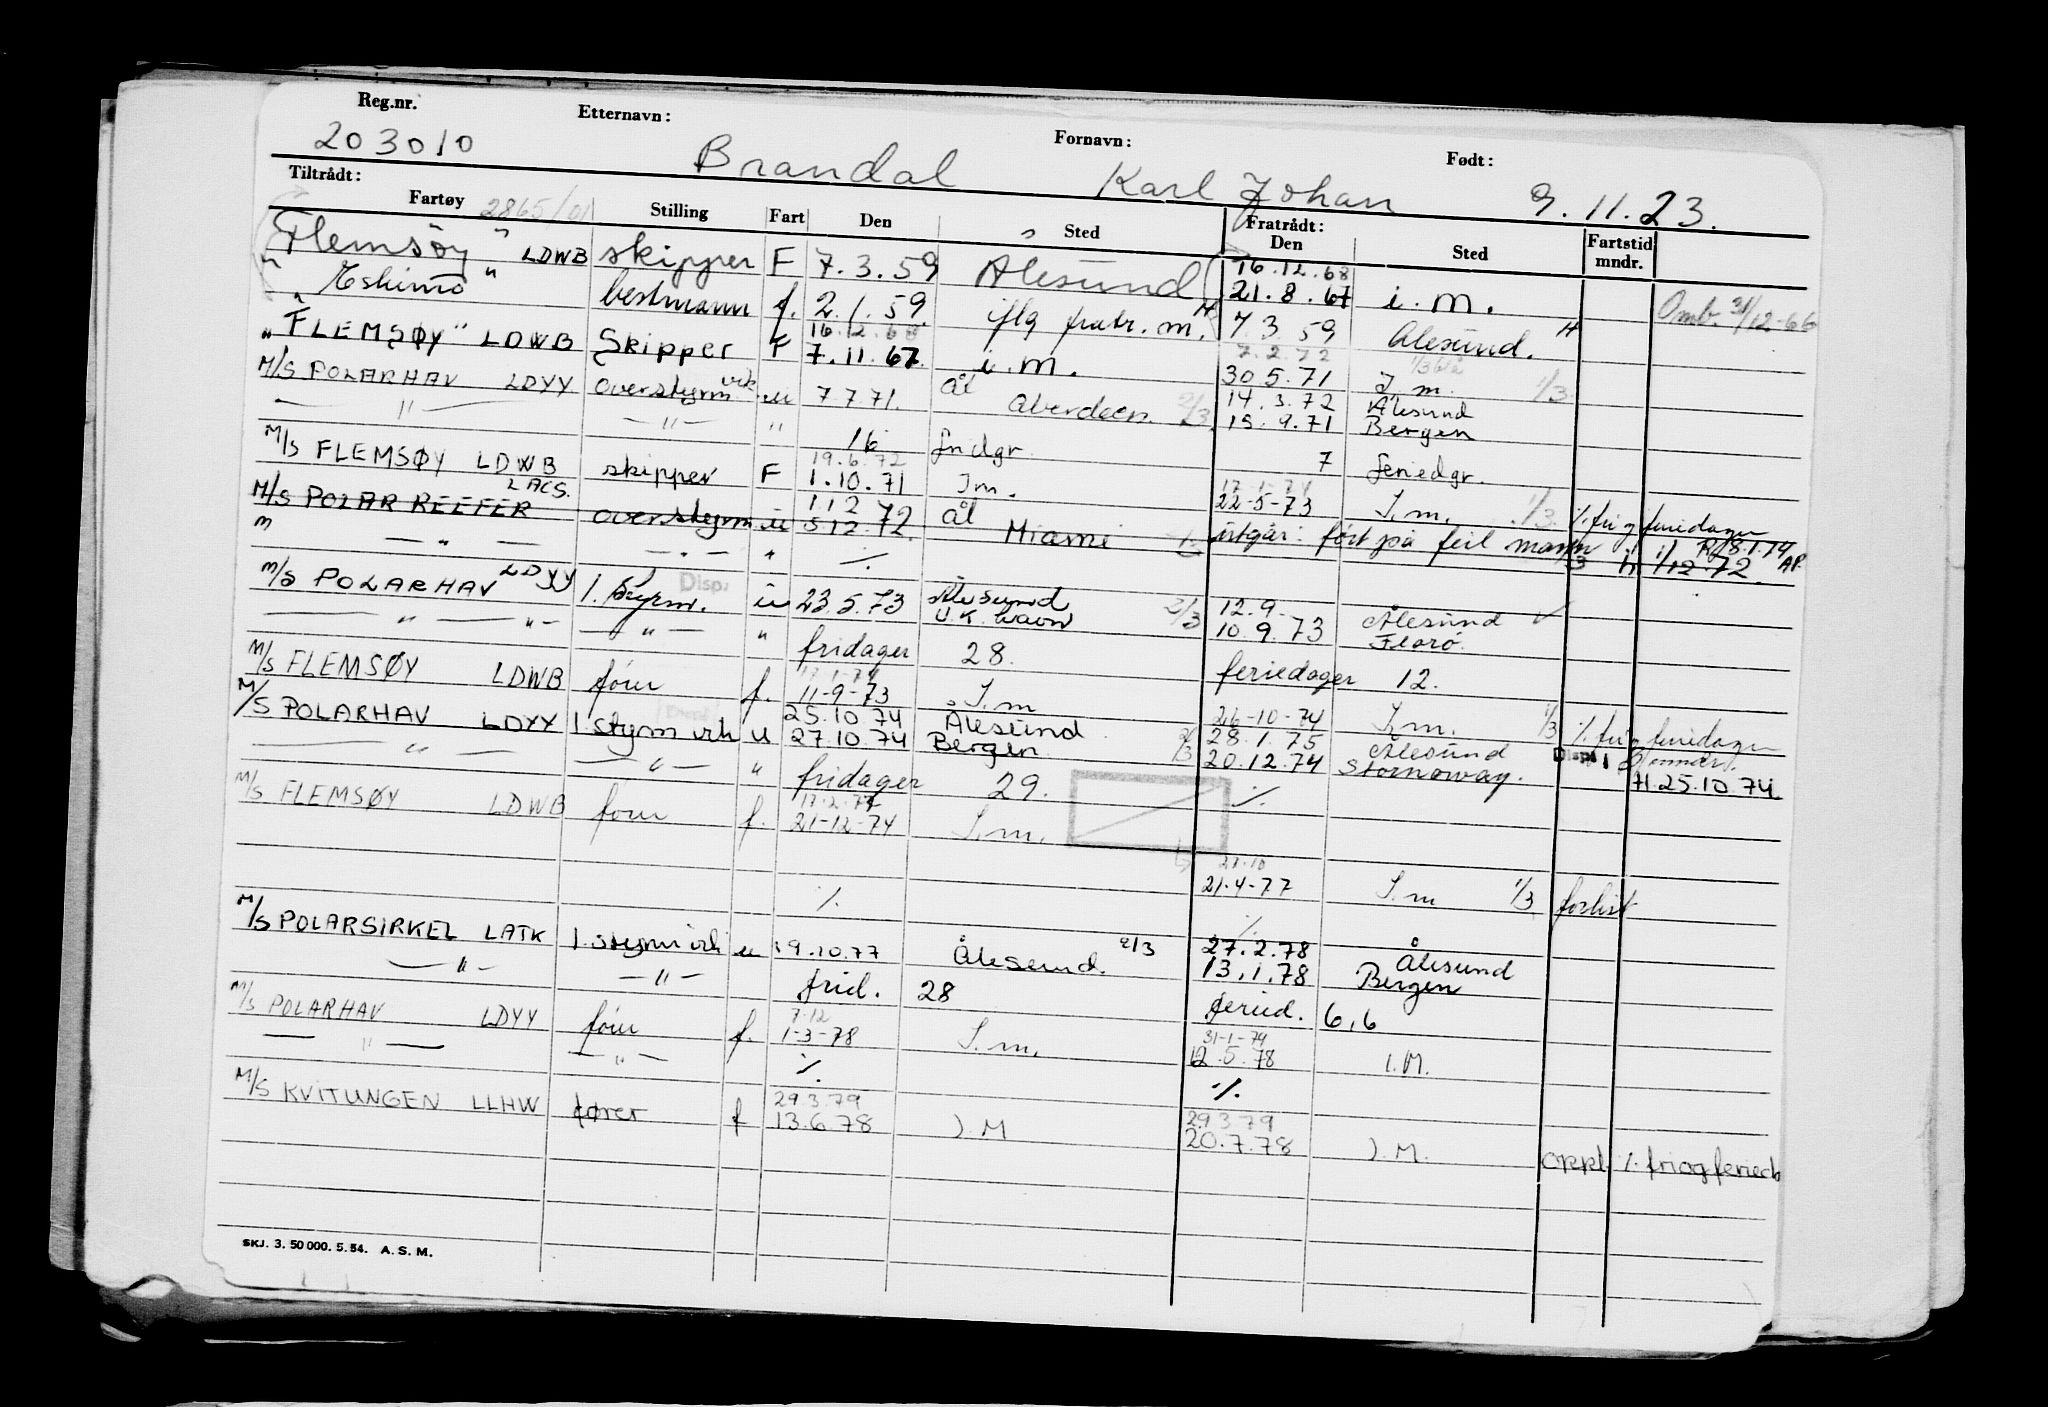 Reg.nr. Etternavn: Fornavn: Født:
203010 Brandal Karl Johan 9.11.23.
Tiltrådt: Fratrådt:
Fartøy 2865/01 Stilling Fart Den Sted Den Sted Fartstid mndr.
"Flemsøy" LDWB skipper F 7.3.59 Ålesund 16.12.68 21.8.67 i.m. Omb. 31/12-66
"Eskimo" bestmann f. 2.1.59. iflg fratr.m. 7 3 59 Ålesund.
"FLEMSØY" LDWB Skipper F 16.12.68 7.11.67 i.m. 7.2.72 30.5.71 I.m. 1/3
M/S POLARHAV LDYY overstyrm vik. u 7.7.71. Ål Aberdeen. 2/3 14.3.72 15.9.71 Ålesund Bergen
— " — — " — " 16 fridgr. 7 feriedgr.
M/S FLEMSØY LDWB skipper F 19.6.72 1.10.71 I m. 17-1-74 22-5-73 I.m. 1/3 %. fri og feriedager
M/S POLAR REEFER LACS. overstyrm u 1.12 5.12.72. Ål Miami utgår: ført på feil mann 18.1.74 AP.
" — " — — " — " %. 1/12.72.
M/S POLARHAV LDYY 1. styrm. Disp. u 23.5.73 Ålesund U.K. havn 2/3 12.9. 10.9.73 Ålesund Florø.
— " — " — — " — " fridager 28. feriedager 12.
M/S FLEMSØY LDWB fører f. 17-1-74 11-9-73 I.m 26-10-74 I.m. 1/3 %. fri og feriedager
M/S POLARHAV LDYY 1 styrm vik u 25.10.74 27.10.74 Ålesund Bergen 2/3 28.1.75 20.12.74 Ålesund Stornoway. Disp. 1
— " — — " — " fridager 29. %. 25.10.74
M/S FLEMSØY LDWB fører f. 21-12-74 I.m.
%. 21.10 21-4-77 I.m 1/3 forlist
M/S POLARSIRKEL LATK 1. styrm vik u 19.10.77 Ålesund. 2/3 %. 27.2.78 13.1.78 Ålesund Bergen
— " — — " — frid. 28 feried. 6,6
M/S POLARHAV LDYY fører f. 7-12 1-3-78 I.m. 31-1-79 12.5.78 I.M.
— " — — " — %. %.
M/S KVITUNGEN LLHW fører f 29.3.79 13.6.78 I.M 29.3.79 20.7.78 I.M. oppl. %. fri og feried.
SKJ. 3. 50 000. 5. 54. A. S. M.